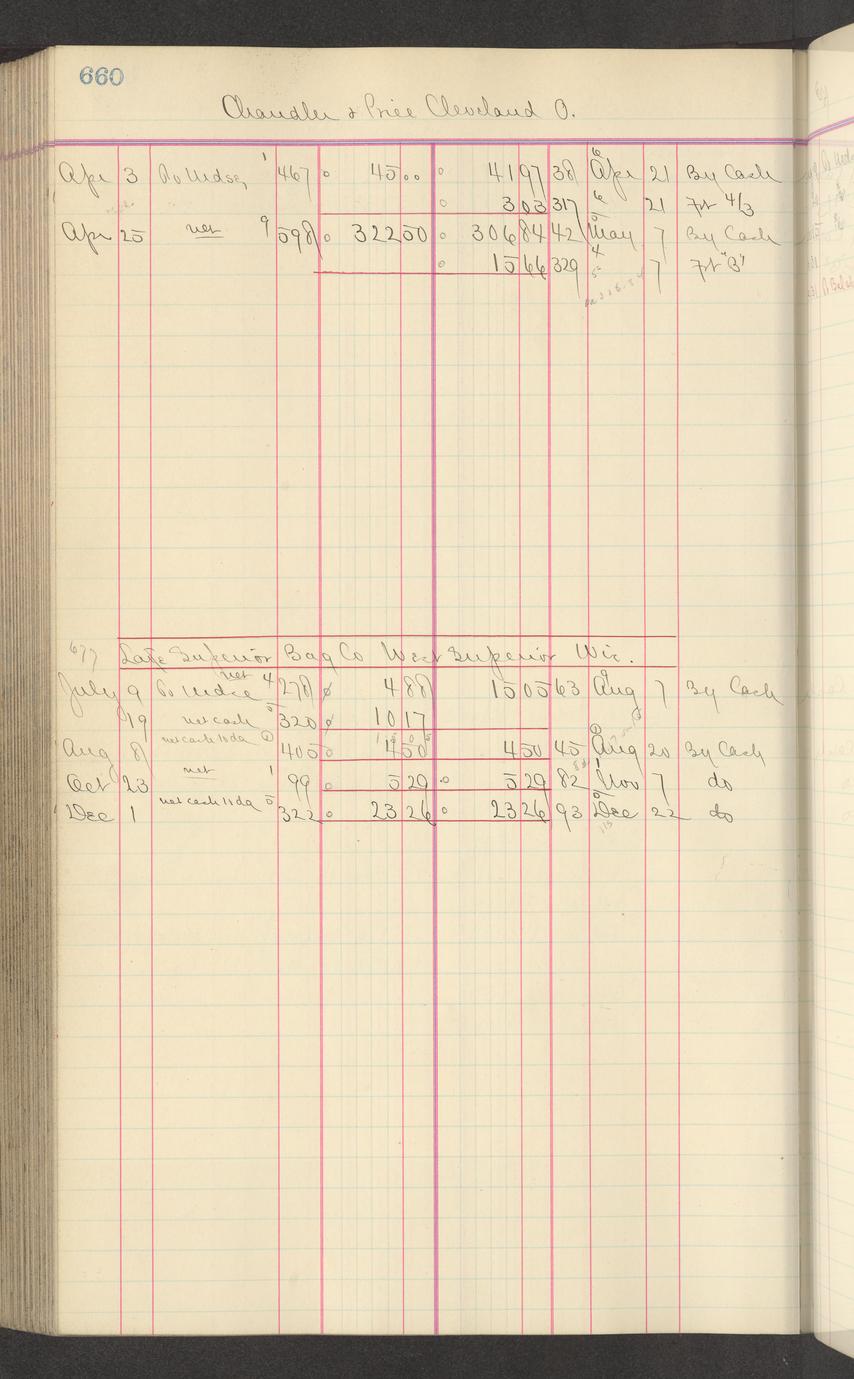 660
Chandler & Price Cleveland O.
Apr 3 To Mdse, 1 467 45 00 41 97 38 6 Apr 21 By Cash
3 03 317 6 21 Frt 4/3
Apr 25 net 9 598 322 50 306 84 42 5 May 7 By Cash
15 66 329 4 5 7 Frt "B"
677 Lake Superior Bag Co West Superior Wis.
July 9 To Mdse net 4 278 4 88 15 05 63 9 Aug 7 By Cash
19 net cash 5 320 10 17
15 05
Aug 8 net cash 10 da 405 4 50 4 50 45 8 Aug 20 By Cash
Oct 23 net 1 99 5 29 5 29 82 1 Nov 7 do
Dec 1 net cash 10 da 5 322 23 26 23 26 93 5 Dec 22 do